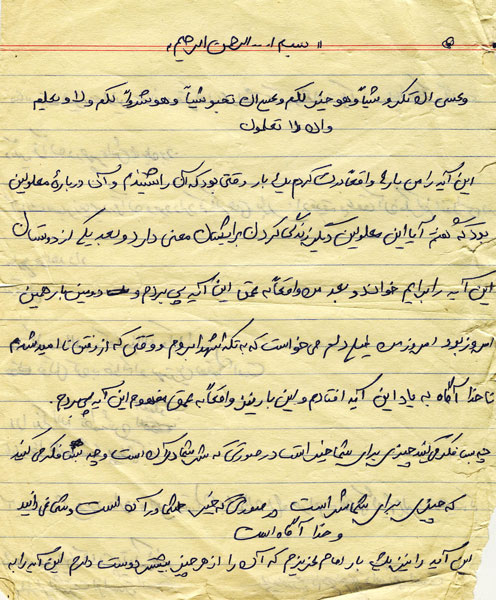 « بسم الله الرحمن الرحیم »
و عسی ان تکرهو شیأ و هو خیر لکم و عسی ان تحبو شیأ و هو شر لکم والله و یعلم
و انتم لا تعلمون
این آیه را من بارها واقعاً درک کردم یک بار وقتی بود که آن را شنیدم و آن درباره معلولین
بود که گفتم آیا این معلولین دیگر زندگی کردن برایشان معنی دارد و بعد یکی از دوستان
این آیه را برایم خواند و بعد من واقعاً به عمق این آیه پی بردم و دومین بار همین
امروز بود امروز من خیلی دلم می خواست که به تکه بروم و وقتی که از رفتن نا امید شدم
نا خدا آگاه به یاد این آیه افتادم و این بار نیز واقعاً به عمق مفهوم این آیه پی بردم.
چه بسا فکر می کنید چیزی برای شما خیر است در صورتی که شر شما در آن است و چه بسا فکر می کنید
که چیزی برای شما شر است در صورتی که خیر شما در آن است و شما نمی دانید
و خدا آگاه است
این آیه را نیز یک بار امام عزیزم که آن را از هر چیز بیشتر دوست دارم این آیه را به